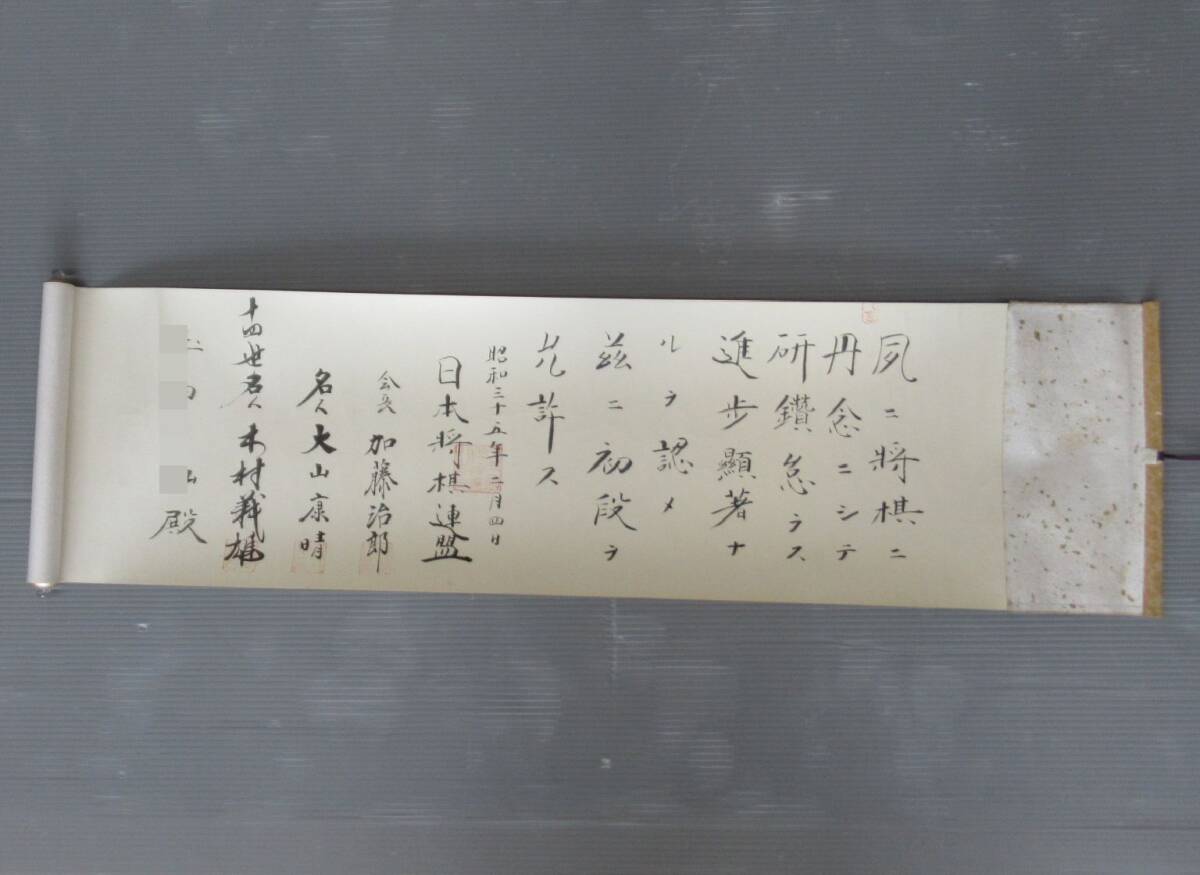 夙ニ將棋ニ
丹念ニシテ
研鑽怠ラス
進步顯著ナ
ルヲ認メ
茲ニ初段ヲ
允許ス
昭和三十五年二月四日
日本将棋連盟
会長 加藤治郎
名人 大山康晴
十四世名人 木村義雄
殿